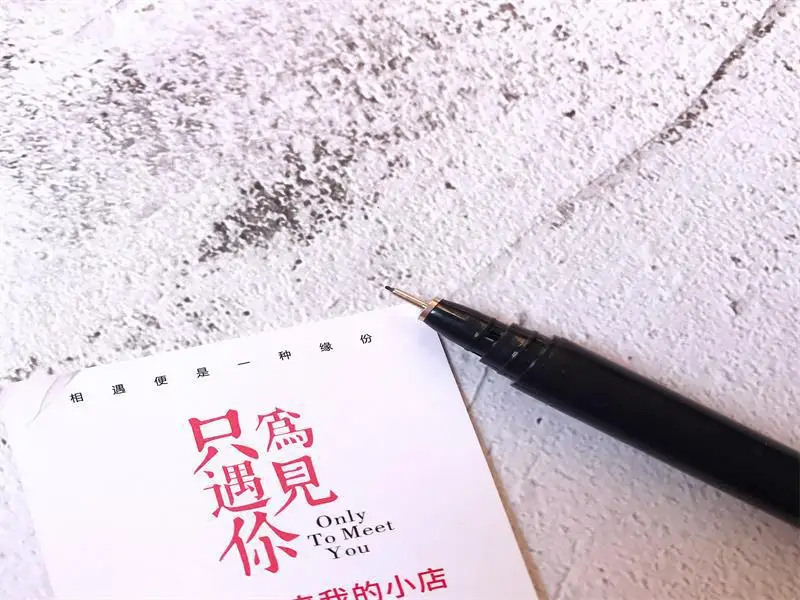 相遇便是一种缘份
只為
遇見
你
Only
To Meet
You
我的小店